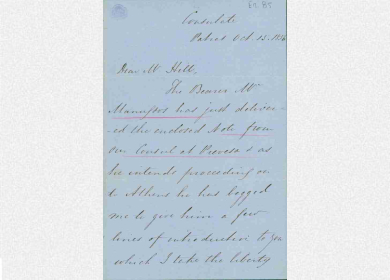 Consulate
Patras Oct 13. 
Dear Mr Hill,
The Bearer Mr
has just deliver-
ed the enclosed Note from
our Consul at Prevesa & as
he intends proceeding on
to Athens he has begged
me to give him a few
lines of introduction to you
which I take the liberty